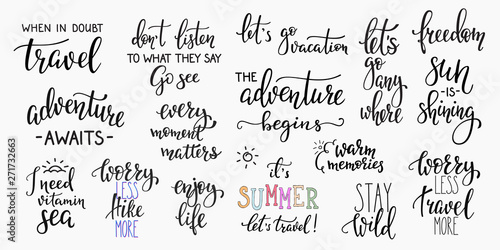 WHEN IN DOUBT
travel
don't listen
TO WHAT THEY SAY
Go see
let's go vacation
let's
go any
where
freedom
sun
-IS-
shining
adventure
-AWAITS-
every
moment
matters
THE
adventure
begins
& warm
memories
I need
vitamin
sea
worry
LESS
hike
MORE
enjoy
life
it's
SUMMER
let's travel!
STAY
wild
worry
LESS
travel
MORE
Adobe Stock | #271732663